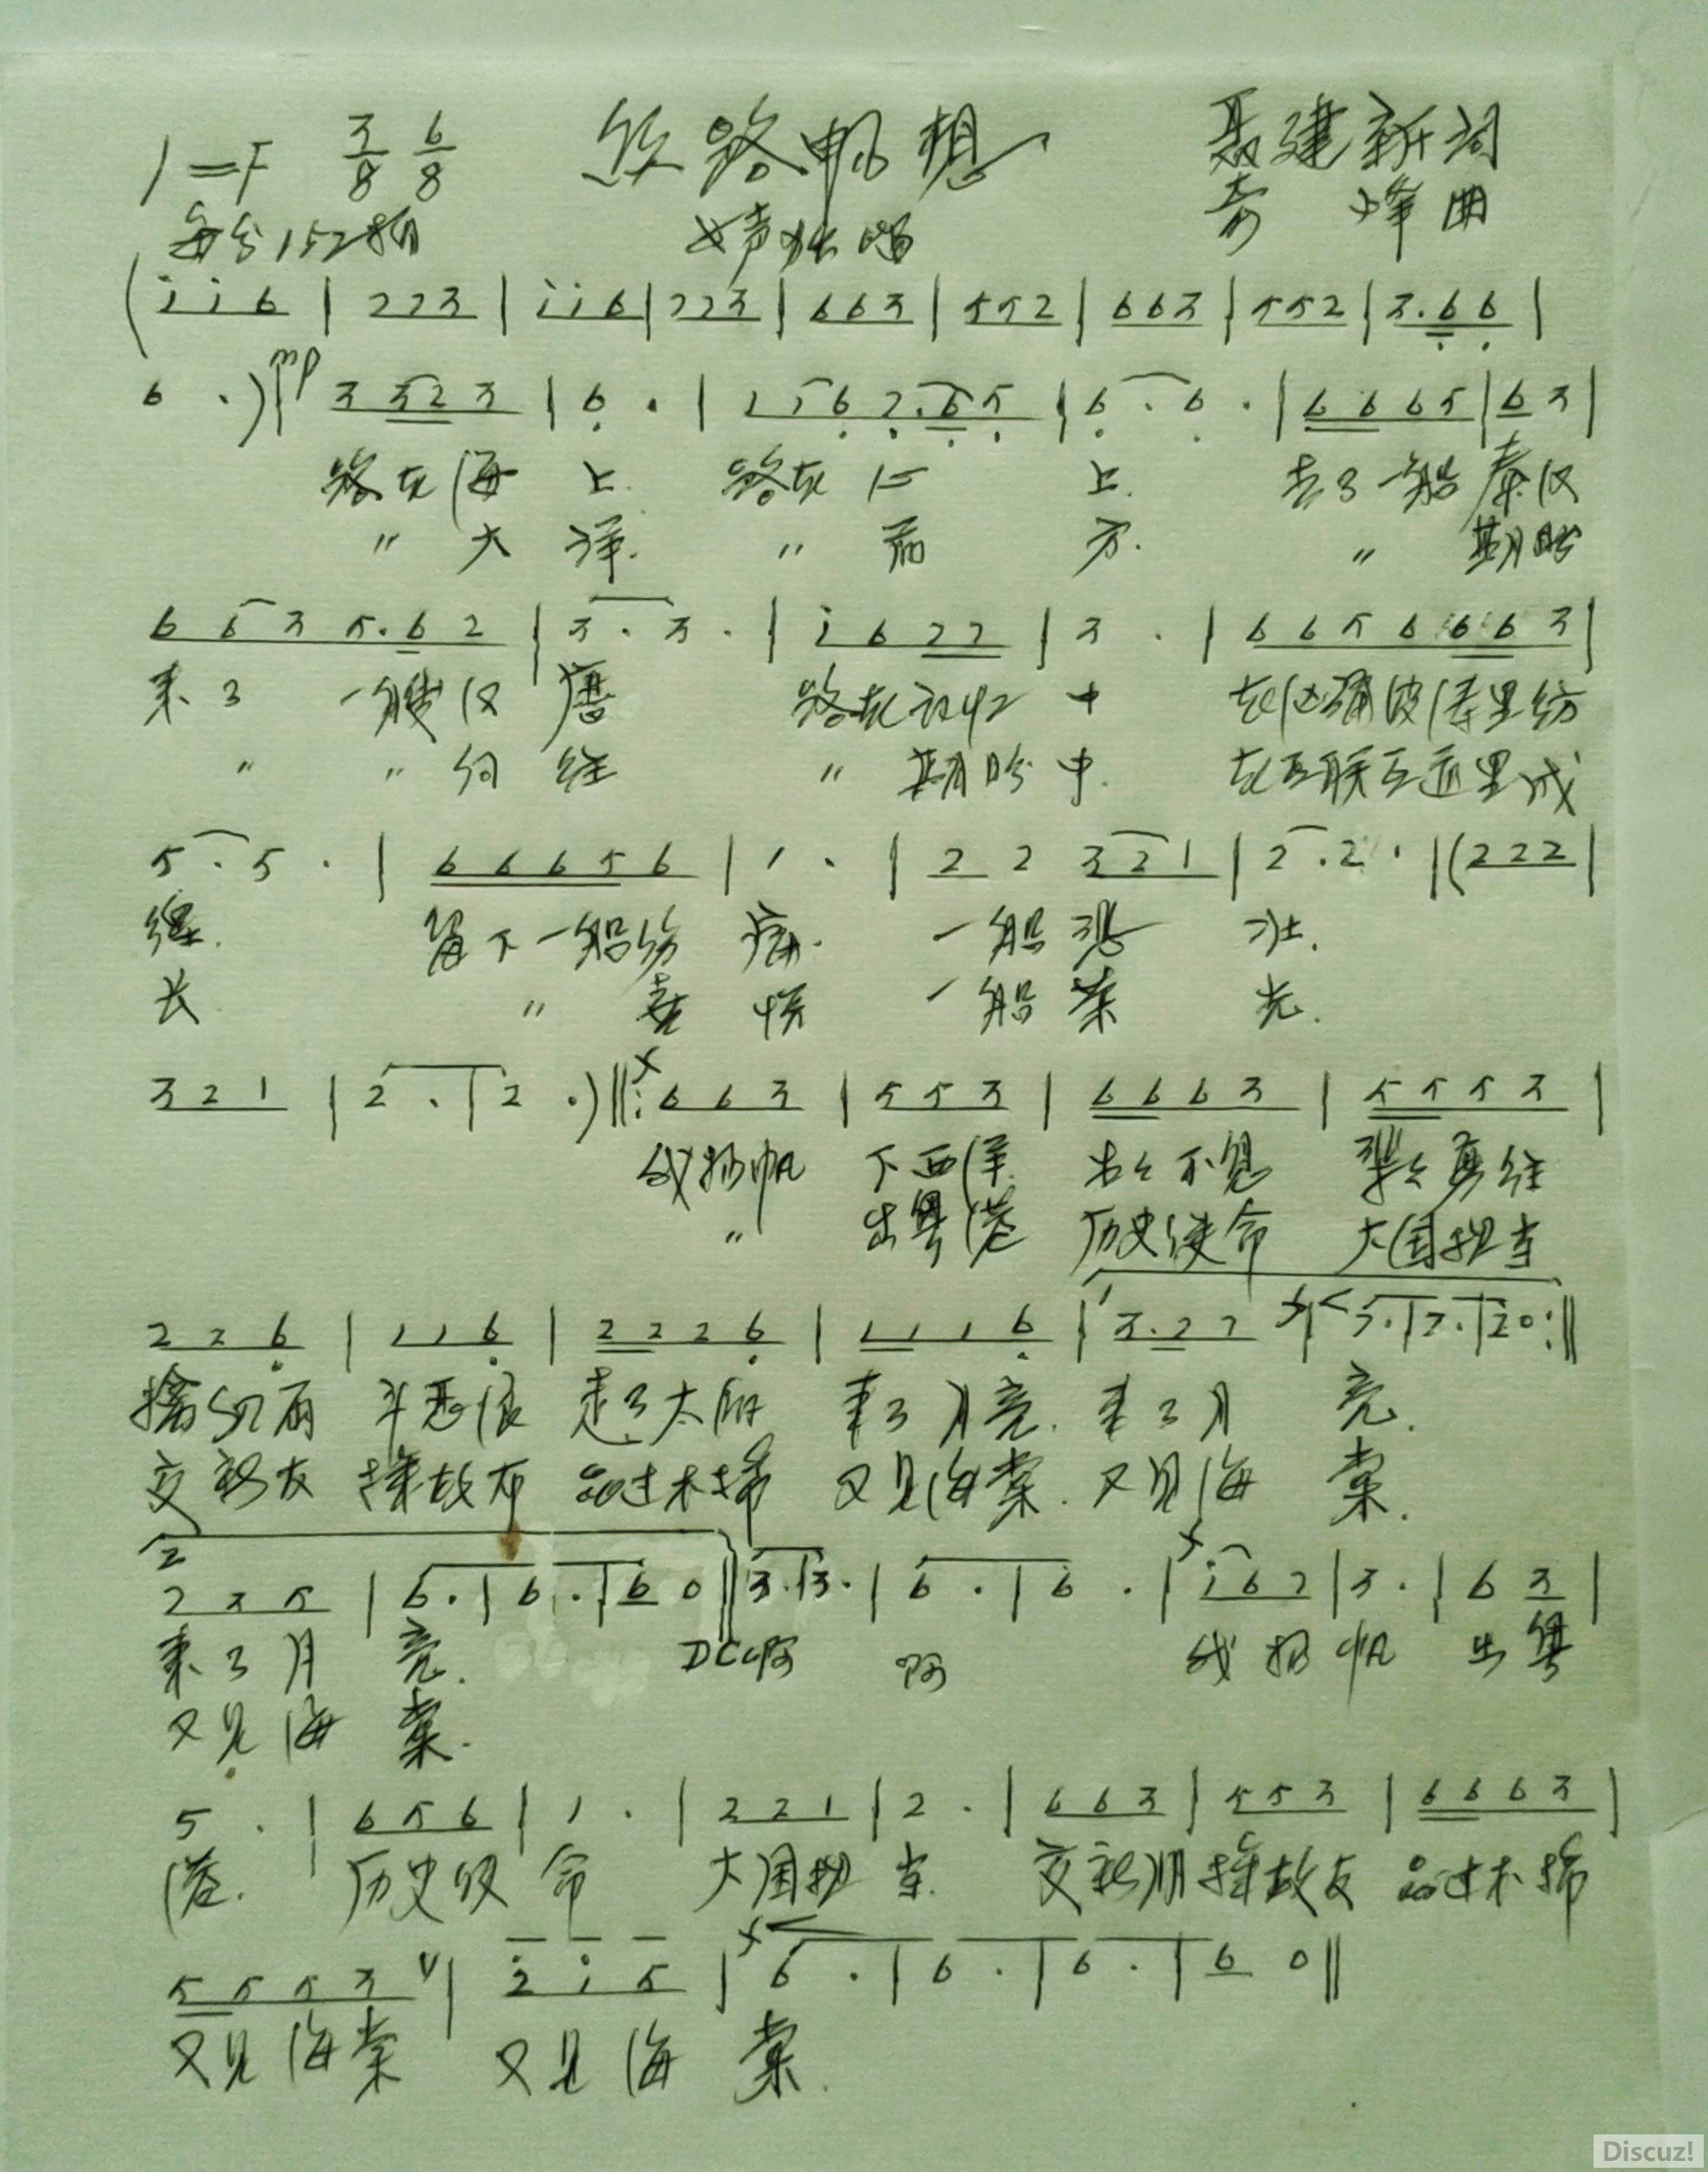 1=F 3/8 6/8 丝路畅想 聂建新词
每分152拍 女声独唱 奇峰曲
(i i 6 | 2 2 3 | i i 6 | 2 2 3 | 6 6 3 | 5 5 2 | 6 6 3 | 5 5 2 | 3. 6 6 |
6 .) | mp 3 3 2 3 | 6 . | 1 1 6 2. 6 5 | 6 . 6 . | 6 6 6 5 | 6 3 |
路在海上. 路在心上. 去了一船秦汉
" 大洋. " 前方. " 期盼
6 6 3 5. 6 2 | 3 . 3 . | i 6 2 2 | 3 . | 6 6 5 6 6 6 3 |
来了一艘汉唐 路在记忆中 在汹涌波涛里
" " 向往 " 期盼中. 在互联互通里成
5 . 5 . | 6 6 6 5 6 | 1 . | 2 2 3 2 1 | 2 . 2 . | (2 2 2 |
留下一船 一船悲壮.
长 " 喜悦 一船荣光.
3 2 1 | 2 . | 2 .) ‖: 6 6 3 | 5 5 3 | 6 6 6 3 | 5 5 5 3 |
我扬帆 下西洋 不见
" 出粤港 历史使命 大国担当
2 2 6 | 1 1 6 | 2 2 2 6 | 1 1 1 6 | 1 3. 2 2 | 3. | 2. | 2 0 :‖
斗恶浪 走了太阳 来了月亮. 来了月亮.
交新友 择故友 品过木棉 又见海棠. 又见海棠.
2
2 3 5 | 6. | 6. | 6 0 ‖ 3. | 3. | 6 . | 6 . | i 6 2 | 3 . | 6 3 |
来了月亮. DC 啊 啊 我扬帆 出粤
又见海棠.
5 . | 6 5 6 | 1 . | 2 2 1 | 2 . | 6 6 3 | 5 5 3 | 6 6 6 3 |
港. 历史使命 大国担当. 交新朋 择故友 品过木棉
5 5 5 3 V | 2 i 5 | 6 . | 6 . | 6 . | 6 0 ‖
又见海棠 又见海棠.
Discuz!